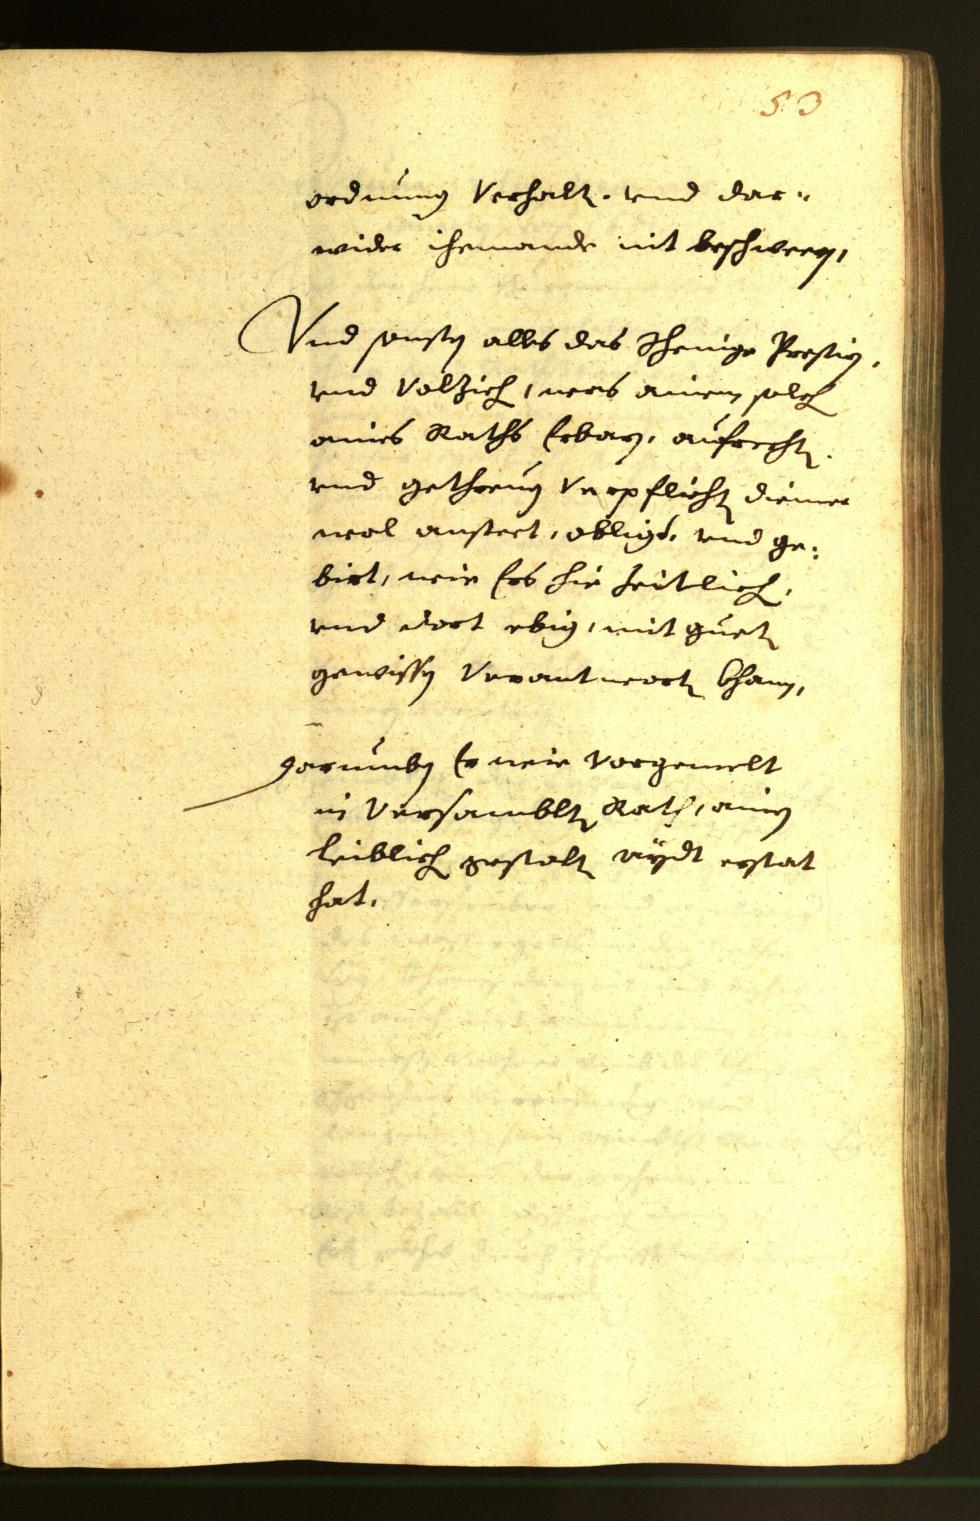 53
ordnung Verhalt. vnd dar¬
wider ihemands nit beschweren,
Vnd sonsten alles das Jhenige Presstiern,
vnd Volziech, was ainem solch
aines Raths Erbarn, aufrechten
vnd gethreuen Verpflichten diener
wol ansteet, obligt, vnd ge¬
birt, wie Ers hie Zeitlich,
vnd dort ebig, mit gueten
gewissen Verantworten khann,
Darumben Er wie Vorgemelt
in Versamblten Rath, ainen
leiblich gestalten aÿdt erstat
hat.